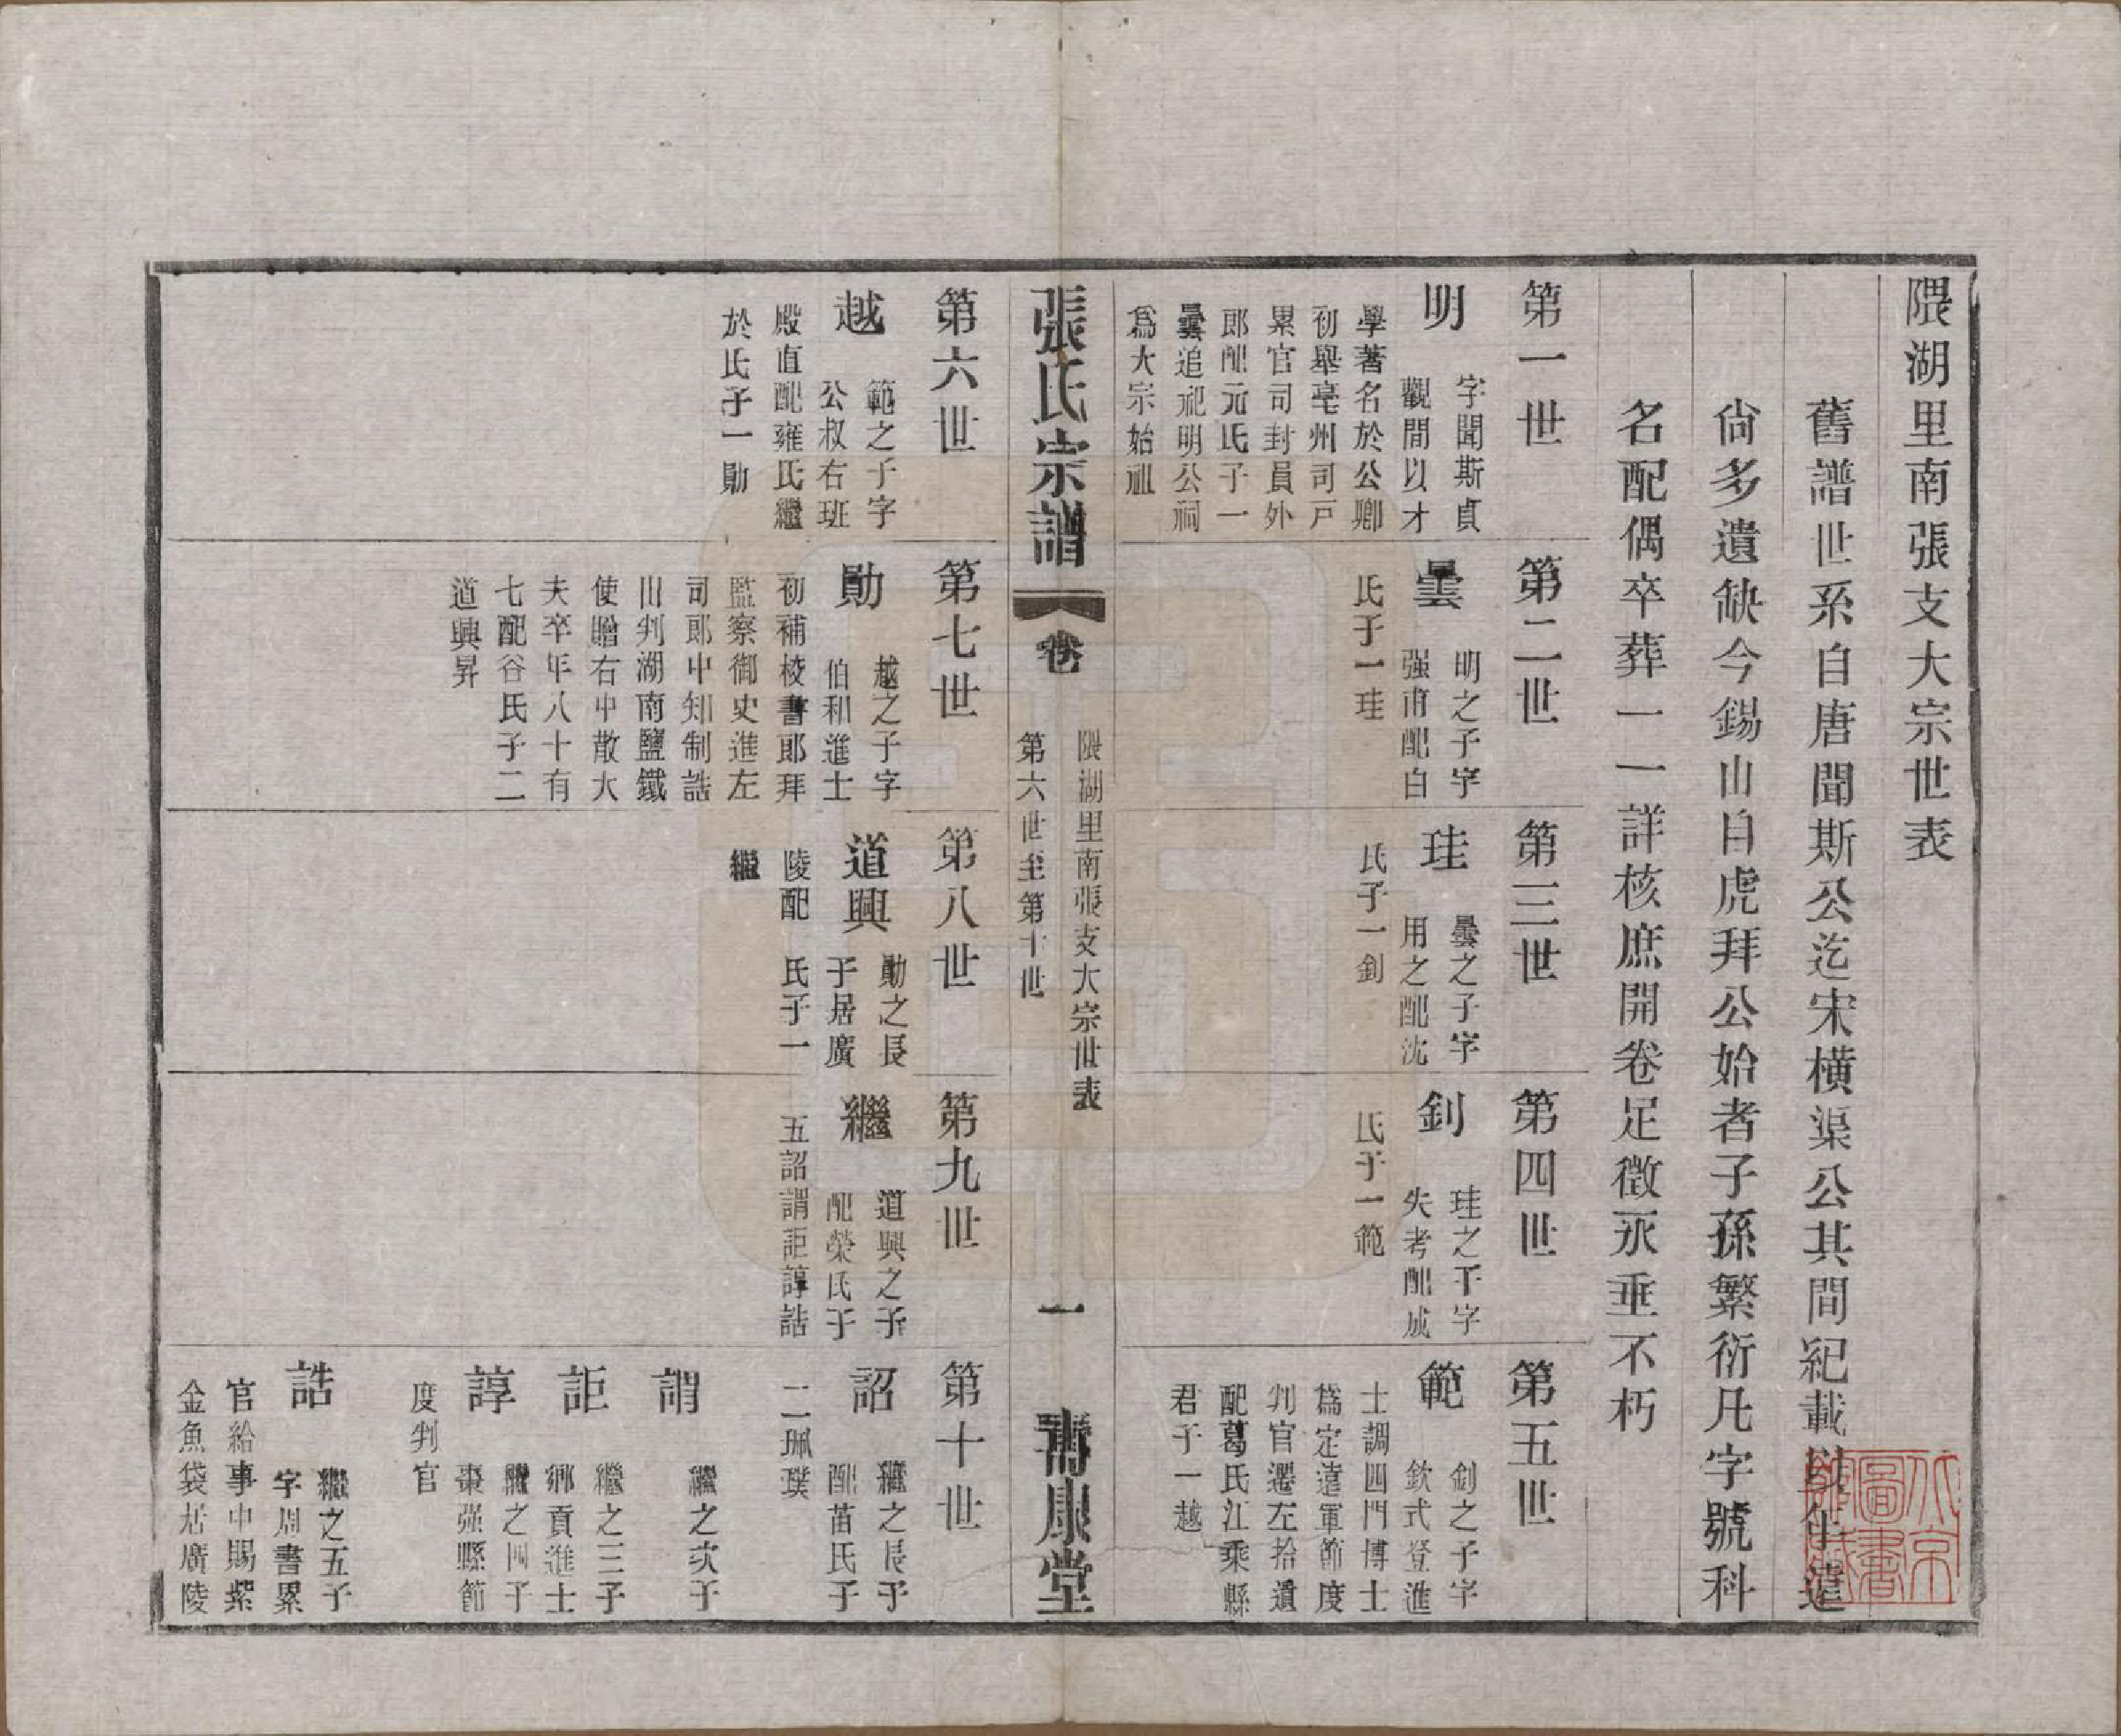 隈湖里南張支大宗世表
舊譜世系自唐聞斯公迄宋橫渠公其間紀載以年遠
尙多遺缺今錫山白虎拜公始者子孫繁衍凡字號科
名配偶卒葬一一詳核庶開卷足徵永垂不朽
第一世
明
字聞斯貞
觀間以才
學著名於公卿
初舉亳州司戸
累官司封員外
郎配元氏子一
曇追祀明公祠
爲大宗始祖
第二世
曇
明之子字
强甫配白
氏子一珪
第三世
珪
曇之子字
用之配沈
氏子一釗
第四世
釗
珪之子字
失考配成
氏子一範
第五世
範
釗之子字
欽式登進
士調四門博士
爲定遠軍節度
判官遷左拾遺
配葛氏江乘縣
君子一越
張氏宗譜
卷
隈湖里南張支大宗世表
第六世至第十世
一
壽康堂
第六世
越
範之子字
公叔右班
殿直配雍氏繼
於氏子一勛
第七世
勛
越之子字
伯和進士
初補校書郎拜
監察御史進左
司郎中知制誥
出判湖南鹽鐵
使贈右中散大
夫卒年八十有
七配谷氏子二
道興昇
第八世
道興
勛之長
子居廣
陵配 氏子一
繼
第九世
繼
道興之子
配榮氏子
五詔謂詎諄誥
第十世
詔
繼之長子
配苗氏子
二珮璞
謂
繼之次子
詎
繼之三子
鄉貢進士
諄
繼之四子
棗强縣節
度判官
誥
繼之五子
字周書累
官給事中賜紫
金魚袋居廣陵